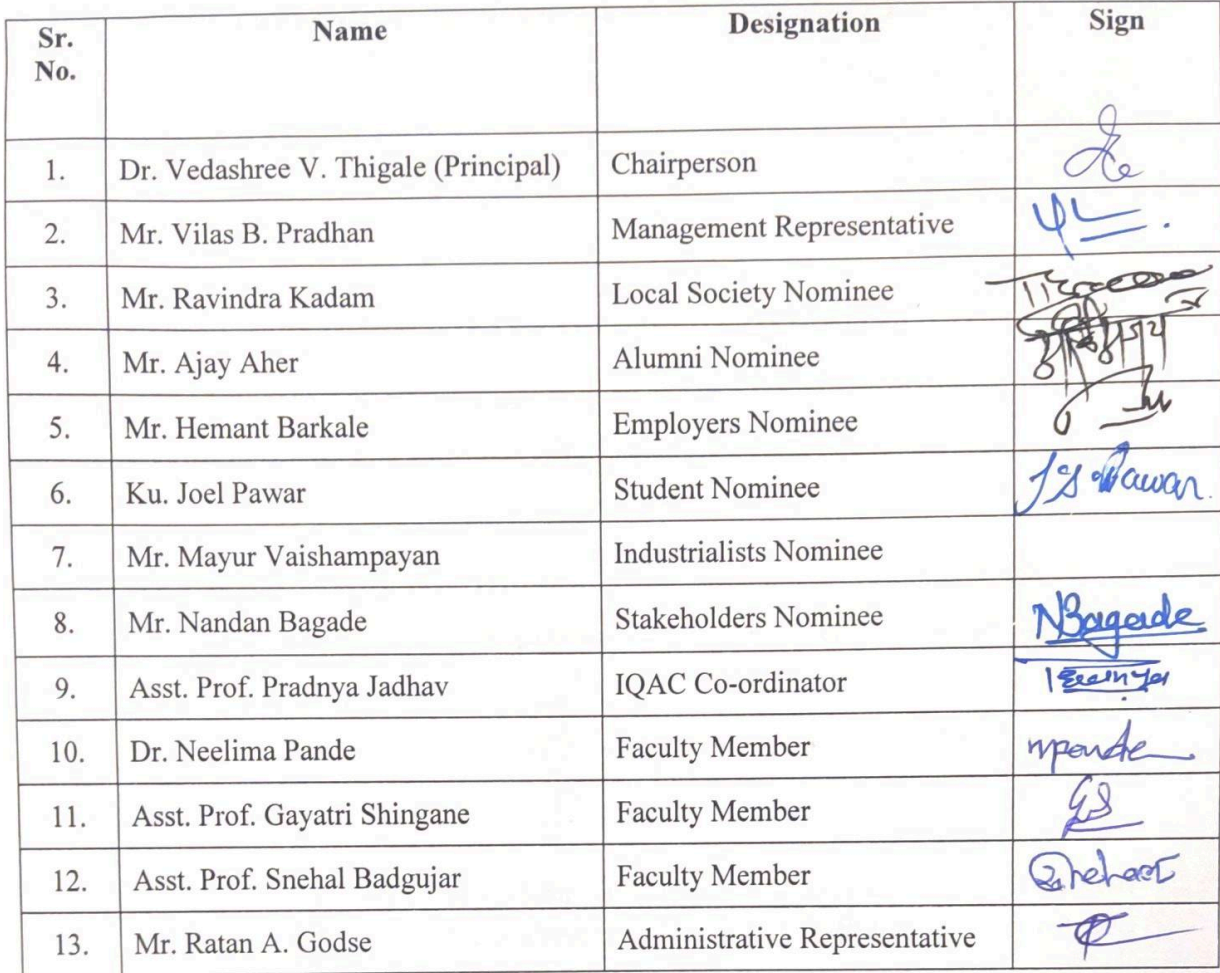 Sr. No. Name Designation Sign
1. Dr. Vedashree V. Thigale (Principal) Chairperson
2. Mr. Vilas B. Pradhan Management Representative
3. Mr. Ravindra Kadam Local Society Nominee
4. Mr. Ajay Aher Alumni Nominee
5. Mr. Hemant Barkale Employers Nominee
6. Ku. Joel Pawar Student Nominee JSPawar
7. Mr. Mayur Vaishampayan Industrialists Nominee
8. Mr. Nandan Bagade Stakeholders Nominee NBagade
9. Asst. Prof. Pradnya Jadhav IQAC Co-ordinator
10. Dr. Neelima Pande Faculty Member npande
11. Asst. Prof. Gayatri Shingane Faculty Member GS
12. Asst. Prof. Snehal Badgujar Faculty Member
13. Mr. Ratan A. Godse Administrative Representative